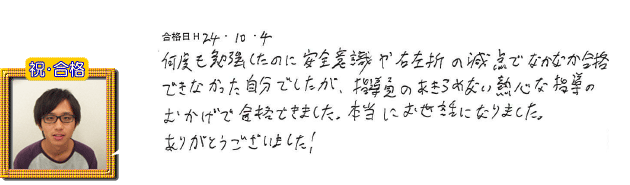 合格日 H 24・10・4
祝・合格
何度も勉強したのに安全意識や右左折の減点でなかなか合格
できなかった自分でしたが、指導員のあきらめない熱心な指導の
おかげで合格できました。本当にお世話になりました。
ありがとうございました!